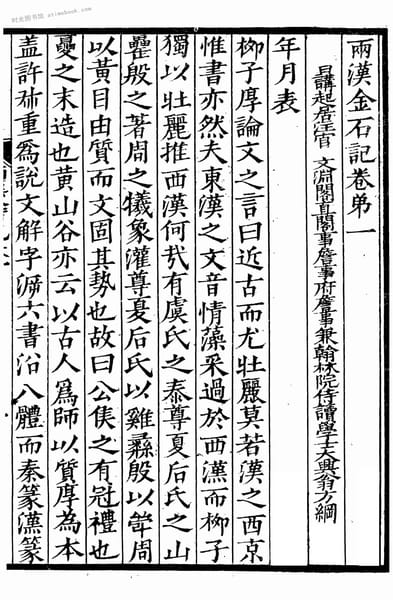 时光图书馆 atimebook.com
兩漢金石記卷弟一
日講起居注官 文淵閣直閣事詹事府詹事兼翰林院侍讀學士大興翁方綱
年月表
栁子厚論文之言曰近古而尤壯麗莫若漢之西京
惟書亦然夫東漢之文音情藻采過於西漢而栁子
獨以壯麗推西漢何哉有虞氏之泰尊夏后氏之山
罍殷之著周之犧象灌尊夏后氏以雞彝殷以斝周
以黃目由質而文固其勢也故曰公侯之有冠禮也
夏之末造也黃山谷亦云以古人爲師以質厚為本
盖許叔重爲說文解字泝六書沿八體而秦篆漢篆